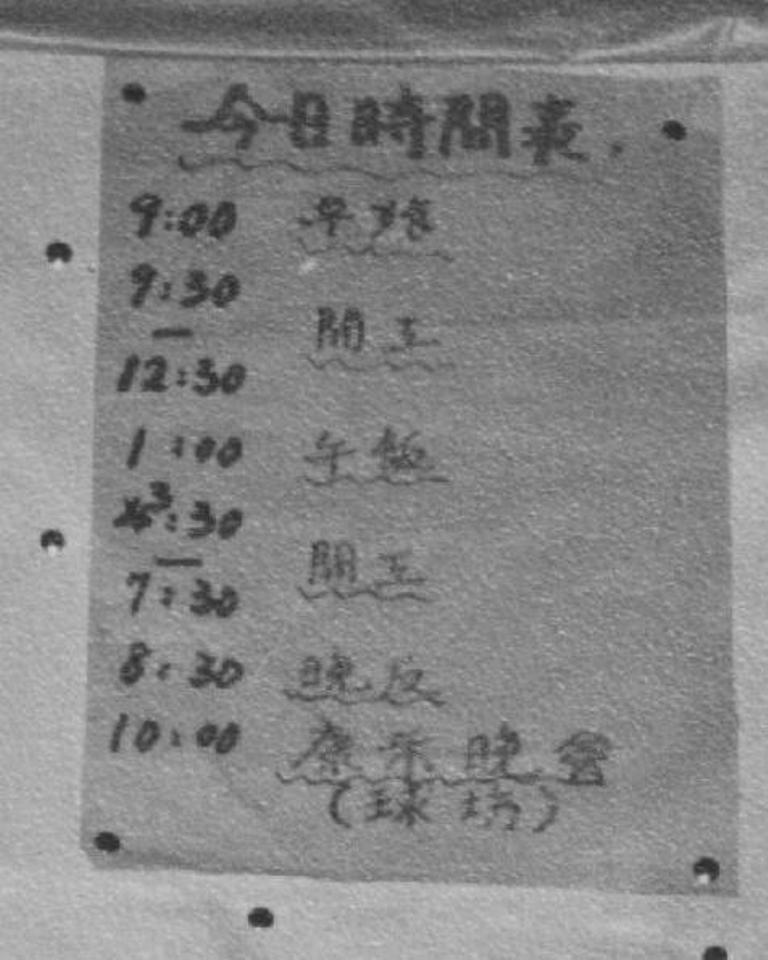 今日時間表.
9:00 早揸
9:30
—
12:30
開工
1:00 午飯
3:30
—
7:30
開工
8:30 晚反
10:00 康乐晚會
(球坊)